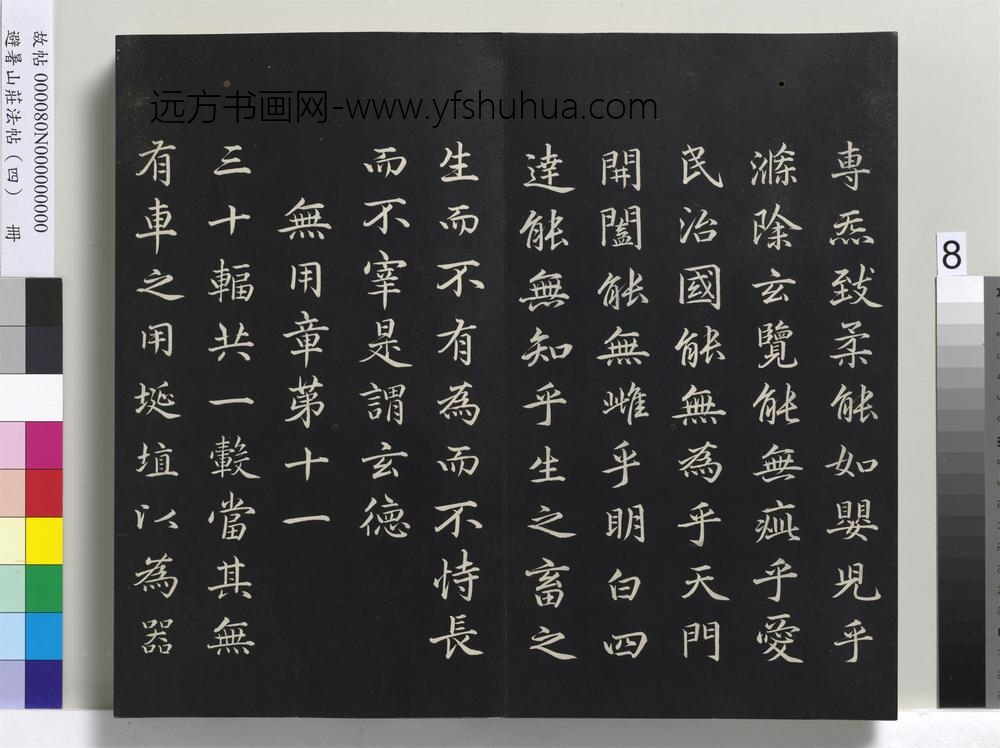 專炁致柔能如嬰児乎
滌除玄覽能無疵乎愛
民治國能無為乎天門
開闔能無雌乎明白四
達能無知乎生之畜之
生而不有為而不恃長
而不宰是謂玄德
無用章第十一
三十輻共一轂當其無
有車之用埏埴以為器
远方书画网-www.yfshuhua.com
故帖 000080N000000000
避暑山莊法帖（四） 冊
8